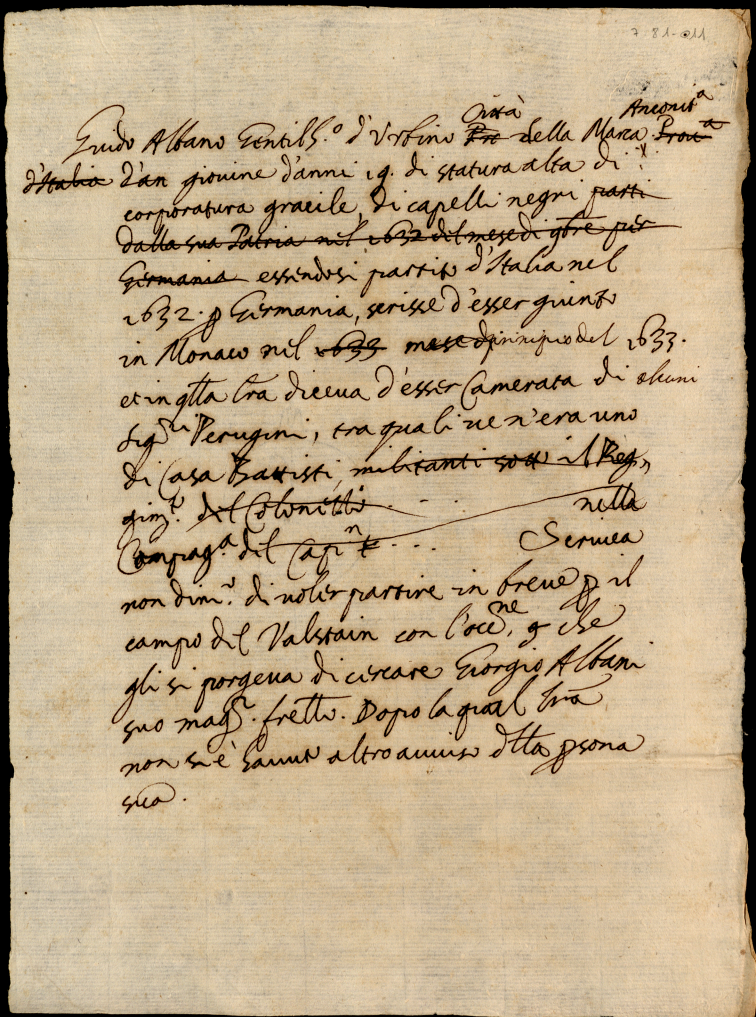 7 81-011
Città Anconit.a
Guido Albano Gentilh.o d'Urbino Pro della Marca Prou.a
d'Italia d'an giouine d'anni 19. di statura alta di
corporatura gracile, di capelli negri parti
dalla sua Patria nel 1632 del mese di 9bre per
Germania essendosi partito d'Italia nel
1632. p Germania, scrisse d'esser giunto
in Monaco nel 1633 mese d principio del 1633.
et in qlla lra diceua d'esser Camerata di alcuni
Sig.ri Perugini, tra quali ue n'era uno
di Casa Battisti, militanti sotto il Reg
gim.to del Colonello . . . nella
Compag.a del Cap.n . . . Scriuea
non dim.o di uoler partire in breue p il
campo del Valstain con l'occ.ne, che
gli si porgeua di cercare Giorgio Albani
suo mag.r frello. Dopo la qual lra
non si è hauuto altro auuiso dlla psona
sua.